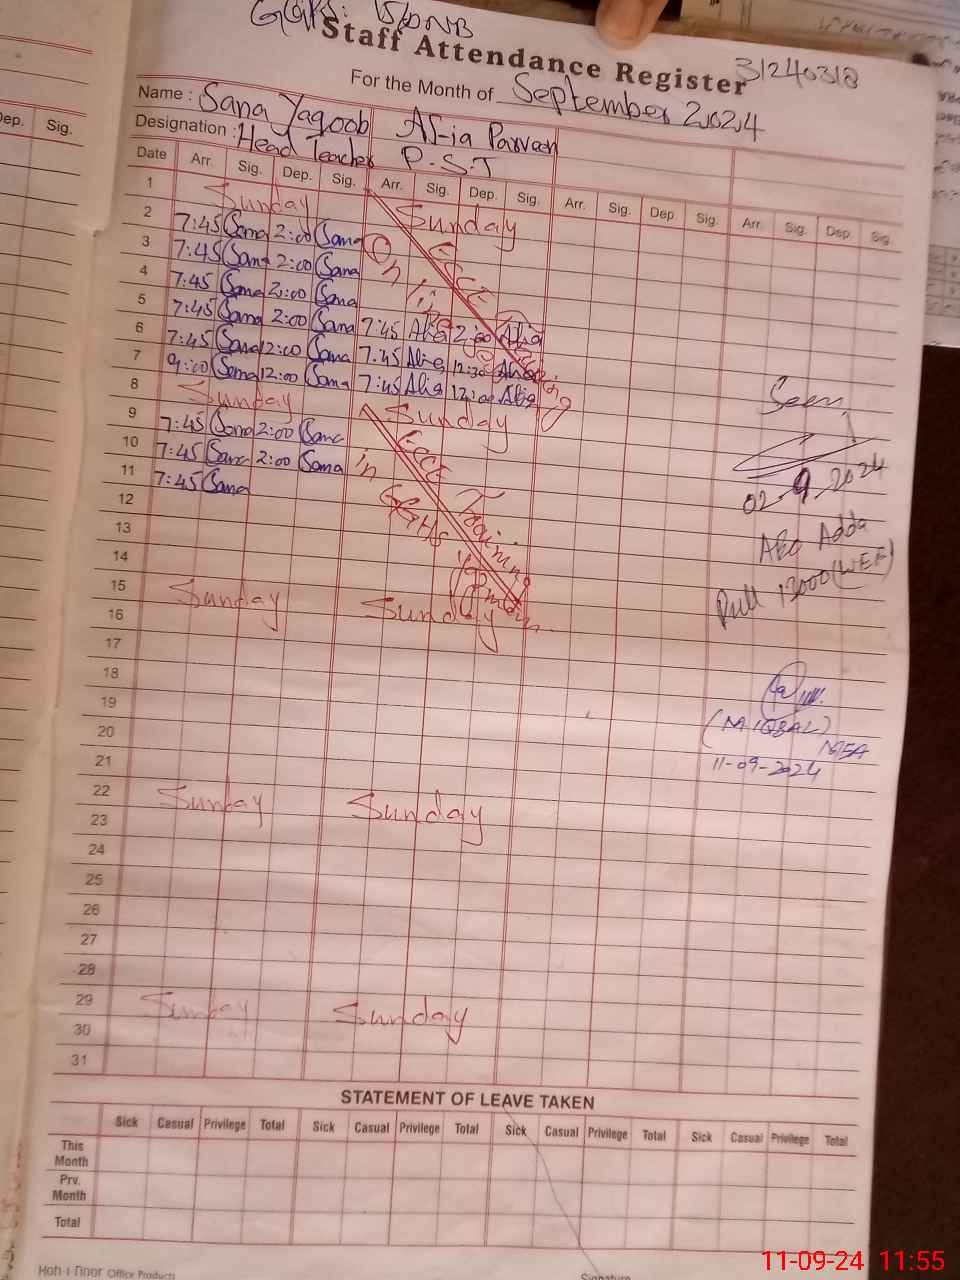 GGPS: 15/DNB
Staff Attendance Register
31240318
For the Month of September 2024
Name : Sana Yaqoob Asia Parveen
Designation : Head Teacher P.S.T
ep. Sig.
Date Arr. Sig. Dep. Sig. Arr. Sig. Dep. Sig. Arr. Sig. Dep. Sig. Arr. Sig. Dep. Sig.
1 Sunday Sunday
2 7:45 Sana 2:00 Sana On ECCE
3 7:45 Sana 2:00 Sana
4 7:45 Sana 2:00 Sana
5 7:45 Sana 2:00 Sana 7:45 Asia 2:00 Asia
6 7:45 Sana 12:00 Sana 7:45 Asia 12:30 Asia
7 9:00 Sana 12:00 Sana 7:45 Asia 12:00 Asia
8 Sunday Sunday
9 7:45 Sana 2:00 Sana
10 7:45 Sana 2:00 Sana in ECCE Training
11 7:45 Sana GGHS
12
13
14
15 Sunday Sunday
16
17
18
19
20
21
22 Sunday Sunday
23
24
25
26
27
28
29 Sunday Sunday
30
31
Seen
02-9-2024
Adda
13000
(M IQBAL)
MEA
11-09-2024
STATEMENT OF LEAVE TAKEN
Sick Casual Privilege Total Sick Casual Privilege Total Sick Casual Privilege Total Sick Casual Privilege Total
This Month
Prv. Month
Total
Koh-i-noor Office Products
Signature
11-09-24 11:55